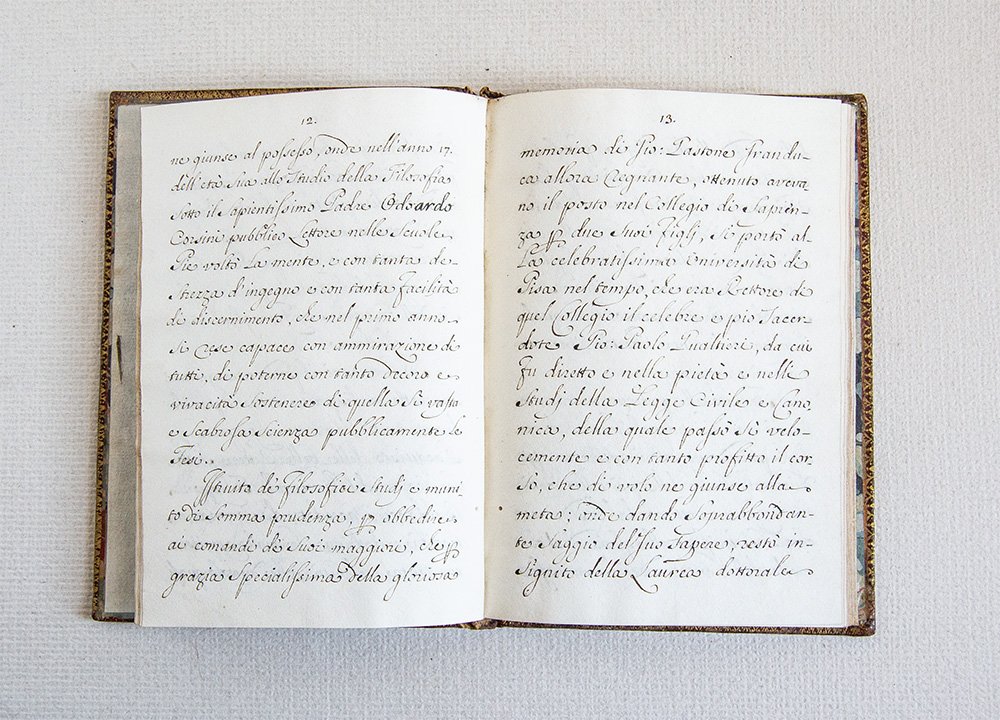 12.
ne giunse al possesso, onde nell'anno 17.
dell'età sua allo Studio della Filosofia
sotto il sapientissimo Padre Odoardo
Corsini pubblico Lettore nelle Scuole
Pie voltò la mente, e con tanta de-
strezza d'ingegno e con tanta facilità
di discernimento, che nel primo anno
si rese capace con ammirazione di
tutti, di poterne con tanto decoro e
vivacità sostenere di quella sì vasta
e scabrosa scienza pubblicamente le
Tesi.
Istruito de' Filosofici Studj e muni-
to di somma prudenza, p obbedire
ai comandi de' suoi maggiori, che p
grazia specialissima della gloriosa
13.
memoria di Gio: Gastone Grandu-
ca allora Regnante, ottenuto aveva-
no il posto nel Collegio di Sapien-
za p due suoi figli, si portò al-
la celebratissima Università di
Pisa nel tempo, che era Rettore di
quel Collegio il celebre e pio Sacer-
dote Gio: Paolo Gualtieri, da cui
fu diretto e nella pietà e nelli
studj della Legge Civile e Cano-
nica, della quale passò sì velo-
cemente e con tanto profitto il cor-
so, che di volo ne giunse alla
meta; onde dando soprabbondan-
te saggio del suo sapere, restò in-
signito della Laurea dottorale